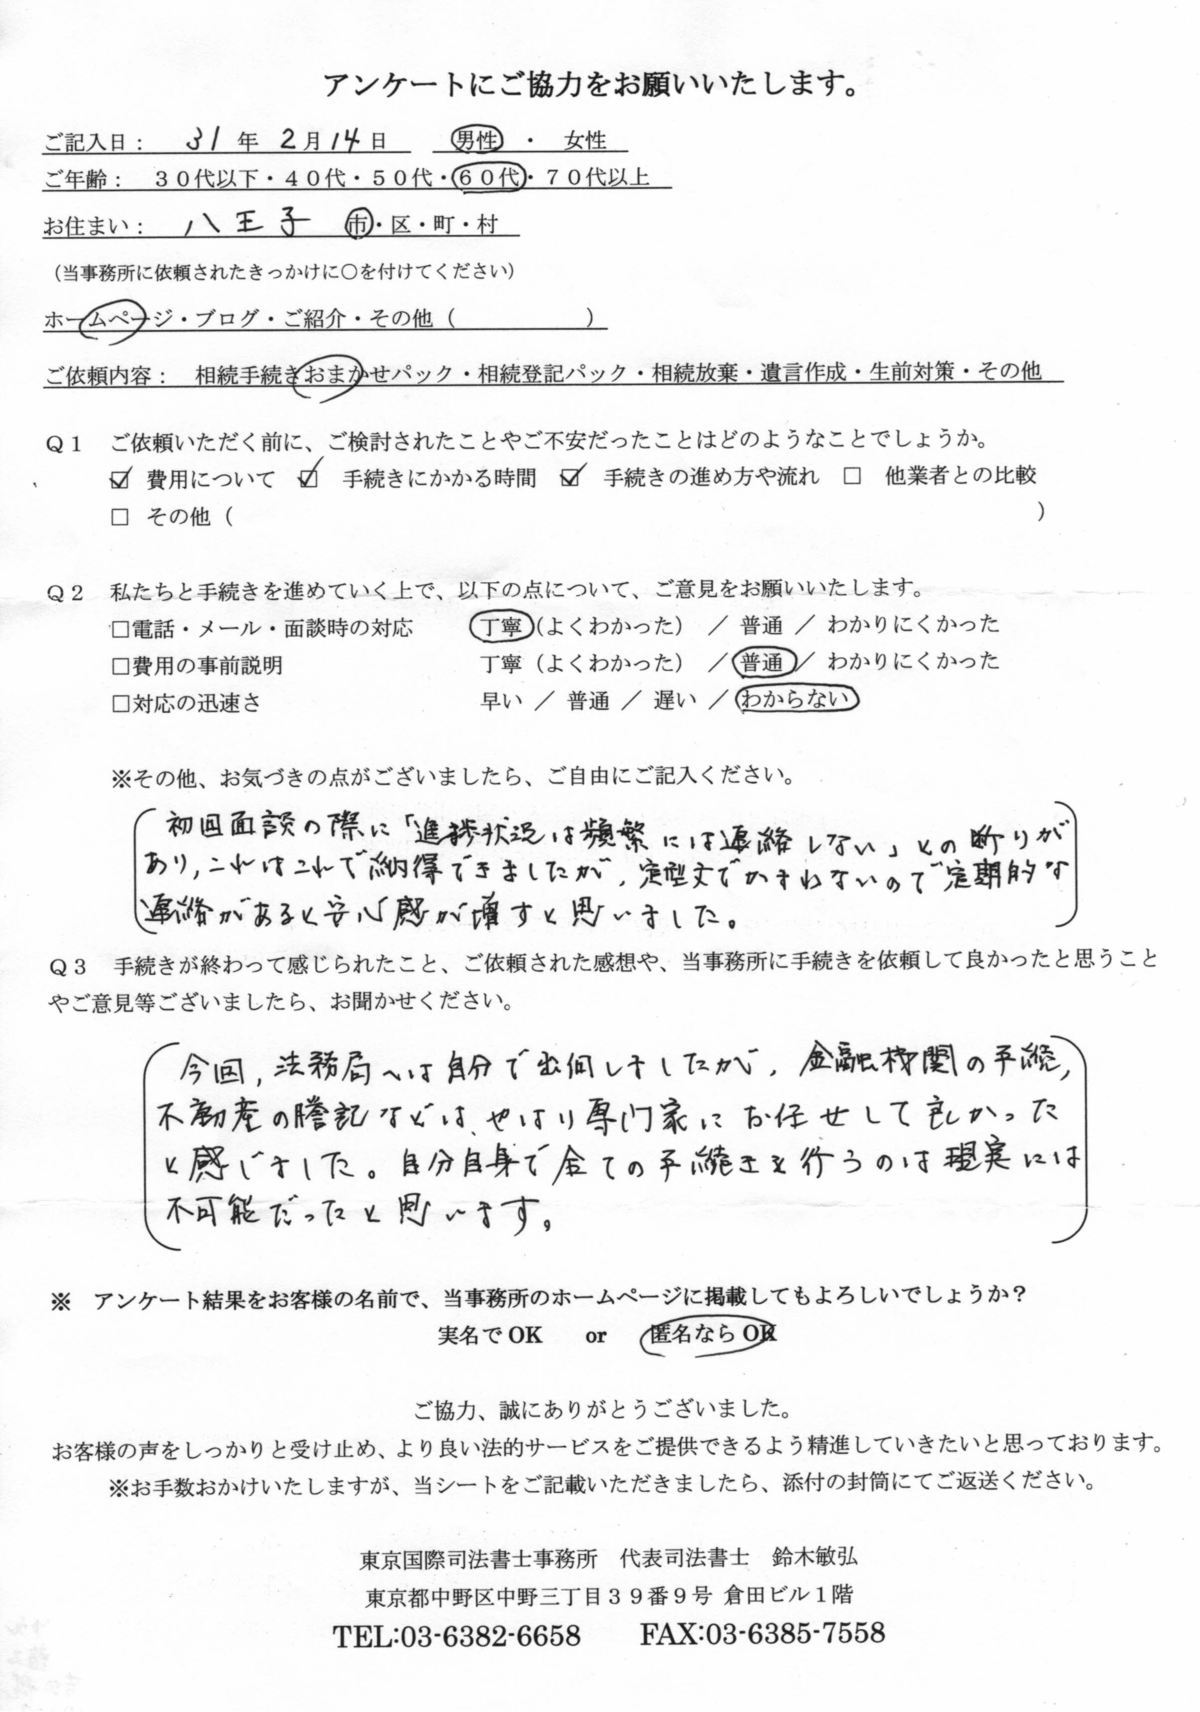 アンケートにご協力をお願いいたします。
ご記入日： 31 年 2 月 14 日 男性 ・ 女性
ご年齢： ３０代以下・４０代・５０代・６０代・７０代以上
お住まい： 八王子 市・区・町・村
（当事務所に依頼されたきっかけに○を付けてください）
ホームページ・ブログ・ご紹介・その他（ ）
ご依頼内容： 相続手続きおまかせパック・相続登記パック・相続放棄・遺言作成・生前対策・その他
Ｑ１ ご依頼いただく前に、ご検討されたことやご不安だったことはどのようなことでしょうか。
☑ 費用について ☑ 手続きにかかる時間 ☑ 手続きの進め方や流れ □ 他業者との比較
□ その他（ ）
Ｑ２ 私たちと手続きを進めていく上で、以下の点について、ご意見をお願いいたします。
□電話・メール・面談時の対応 丁寧（よくわかった） ／ 普通 ／ わかりにくかった
□費用の事前説明 丁寧（よくわかった） ／ 普通 ／ わかりにくかった
□対応の迅速さ 早い ／ 普通 ／ 遅い ／ わからない
※その他、お気づきの点がございましたら、ご自由にご記入ください。
初回面談の際に「進捗状況は頻繁には連絡しない」との断りが
あり、これはこれで納得できましたが、定型文でかまわないので定期的な
連絡があると安心感が増すと思いました。
Ｑ３ 手続きが終わって感じられたこと、ご依頼された感想や、当事務所に手続きを依頼して良かったと思うこと
やご意見等ございましたら、お聞かせください。
今回、法務局へは自分で出向しましたが、金融機関の手続、
不動産の謄記などは、やはり専門家にお任せして良かった
と感じました。自分自身で全ての手続きを行うのは現実には
不可能だったと思います。
※ アンケート結果をお客様の名前で、当事務所のホームページに掲載してもよろしいでしょうか？
実名でOK or 匿名ならOK
ご協力、誠にありがとうございました。
お客様の声をしっかりと受け止め、より良い法的サービスをご提供できるよう精進していきたいと思っております。
※お手数おかけいたしますが、当シートをご記載いただきましたら、添付の封筒にてご返送ください。
東京国際司法書士事務所 代表司法書士 鈴木敏弘
東京都中野区中野三丁目３９番９号 倉田ビル１階
TEL:03-6382-6658 FAX:03-6385-7558